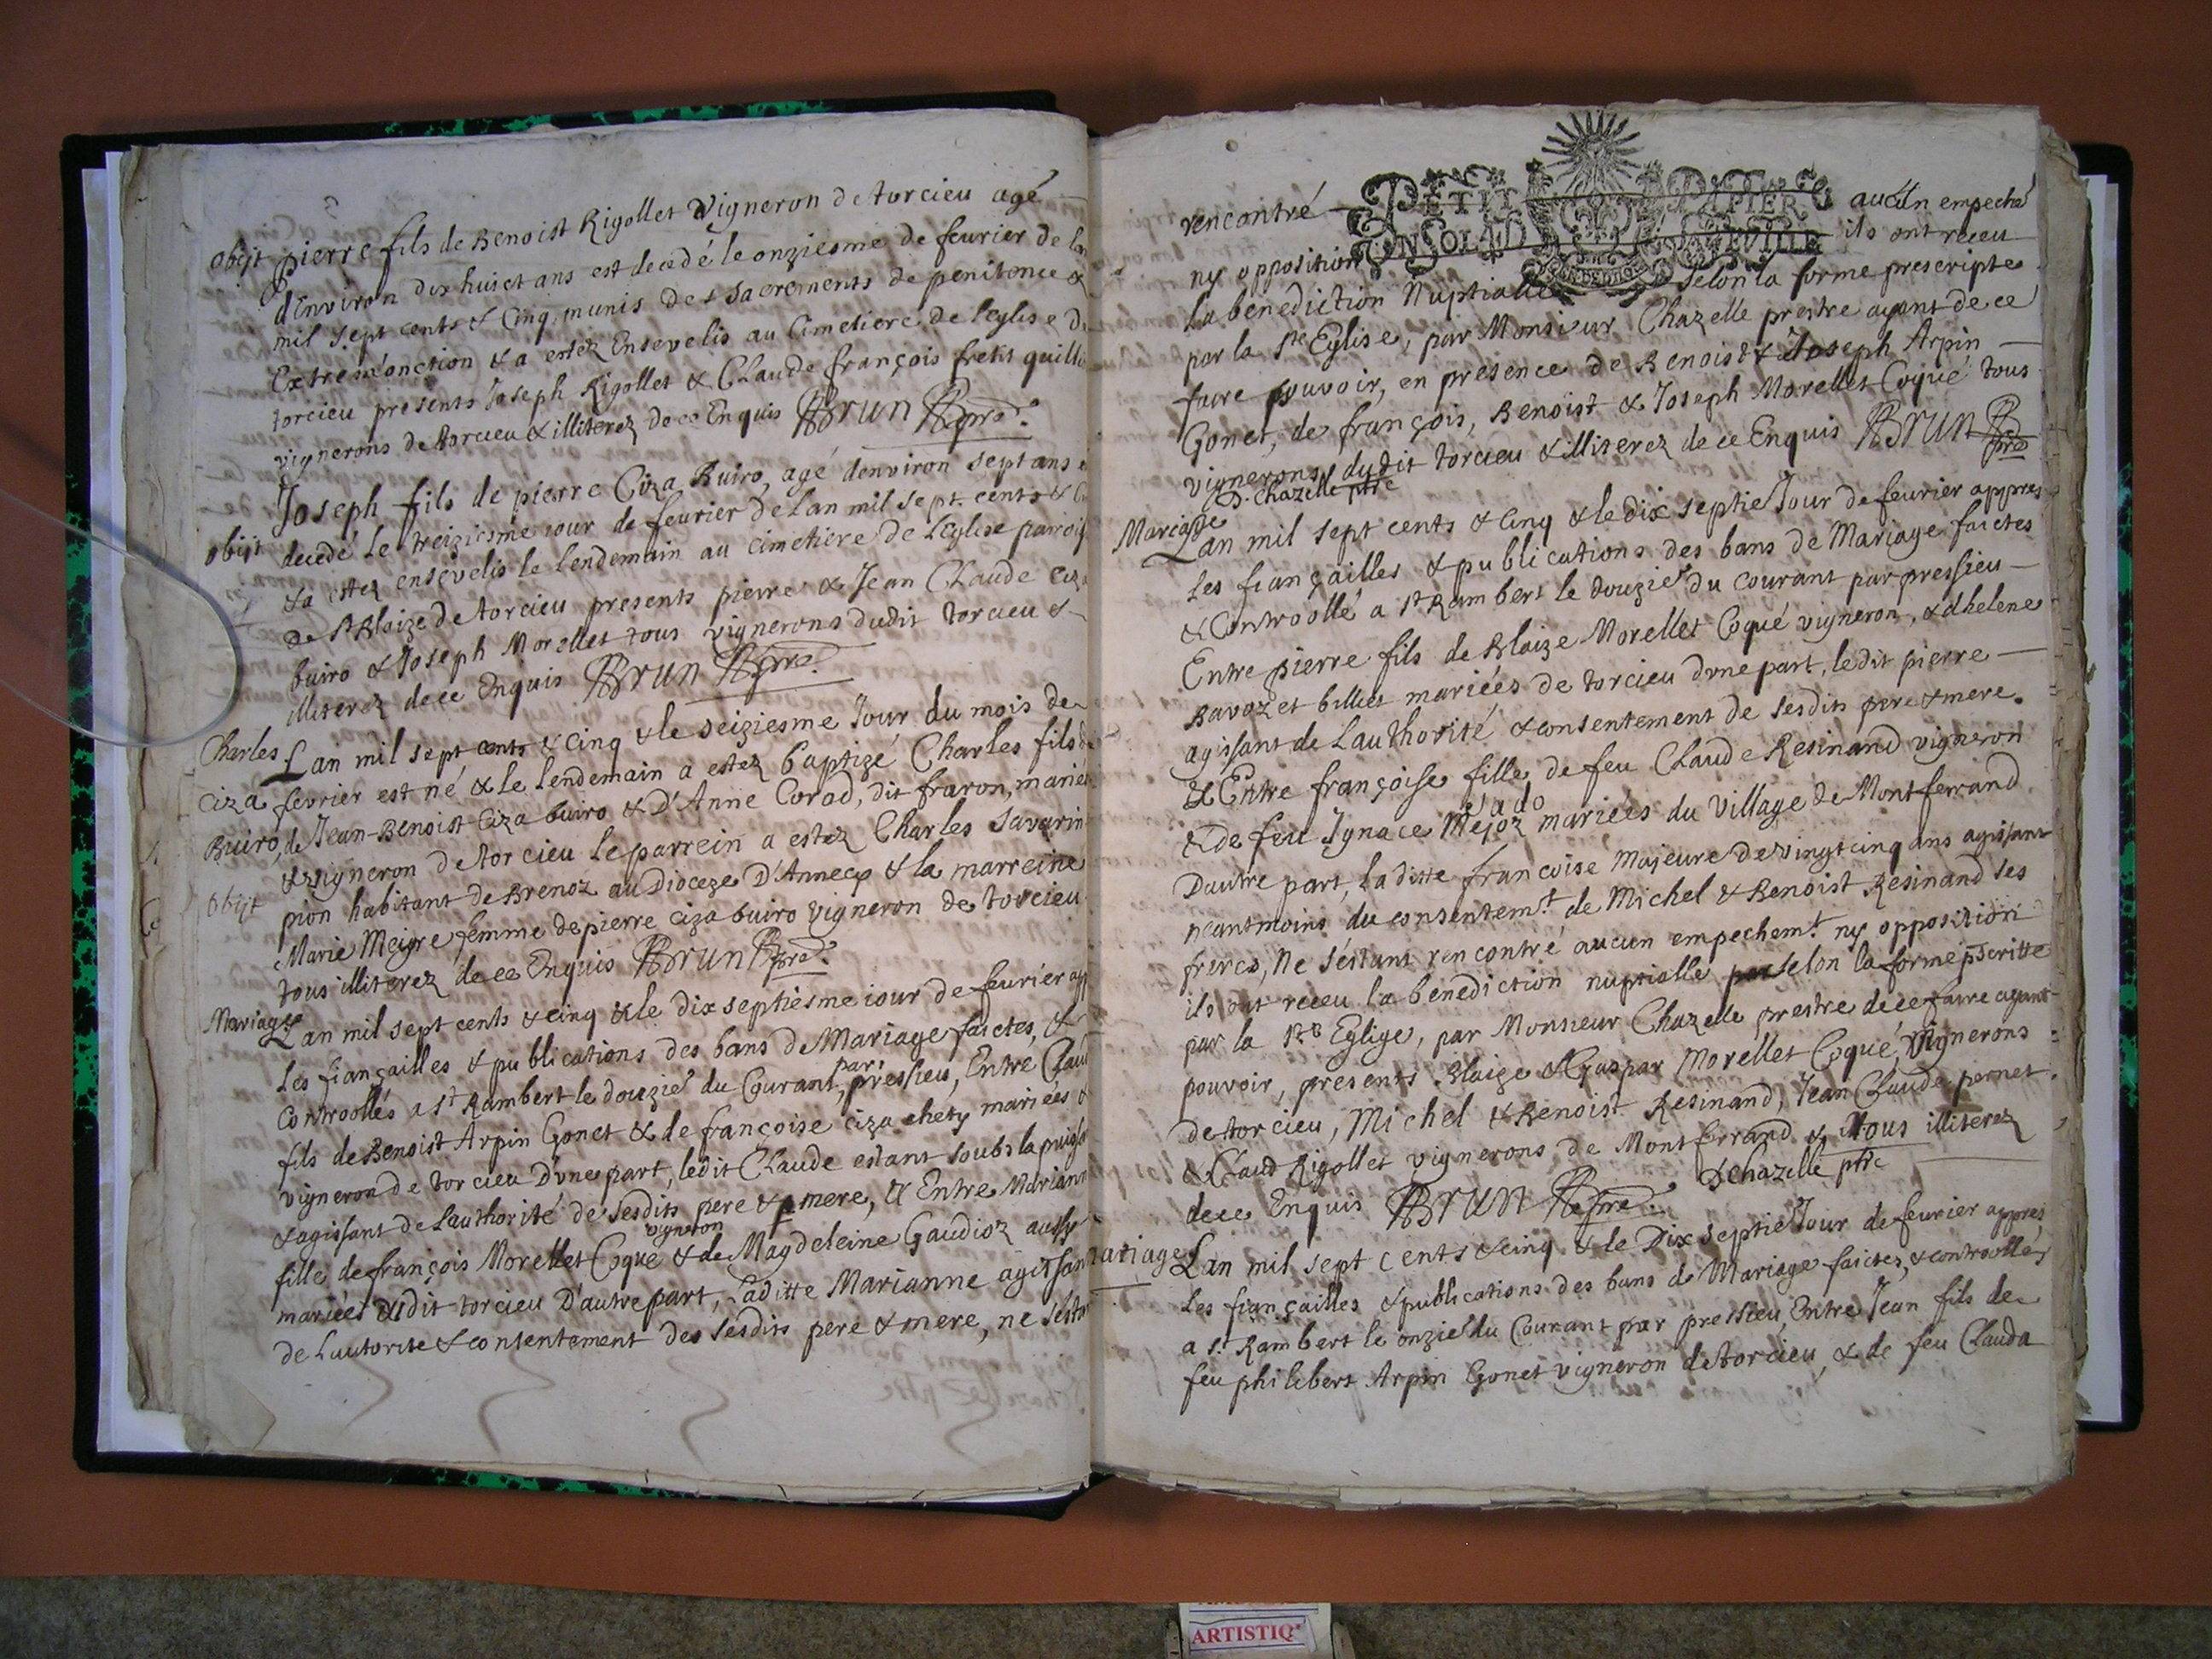 obijt pierre fils de Benoist Rigollet Vigneron de torcieu agé
d'environ dix huict ans est decedé le onziesme de feurier de lan
mil sept cents & Cinq, munis des sacrements de penitence &
Extrem'onction & a estez Ensevelis au Cimetiere de l'eglise de
torcieu presents Joseph Rigollet & Claude françois fretit
vignerons de torcieu & illiterez de ce Enquis Brun
Joseph fils de pierre Ciza Buiro, agé denviron sept ans
obijt decedé Le treiziesme iour de feurier de Lan mil sept cents &
& a estez ensevelis le lendemain au cimetiere de L'eglise
de St Blaize de torcieu presents pierre & Jean Claude ciza
buiro & Joseph Morellet tous vignerons dudit torcieu &
illiterez de ce Enquis Brun
Charles Lan mil sept cents & cinq & le seiziesme Jour du mois de
Ciza fevrier est né & le lendemain a estez baptizé Charles fils
Buiro, de Jean-Benoist Ciza buiro & D'Anne Corad, dit fraron, mariés
& vigneron de torcieu Le parrein a estez Charles Savarin
obijt pion habitant de Brenoz au Dioceze D'Annecy & la marreine
Marie Meigre femme de pierre ciza buiro vigneron de torcieu
tous illiterez de ce Enquis Brun
Mariage Lan mil sept cents & cinq & le dix septiesme iour de feurier
Les fiançailles & publications des bans de Mariage faictes, &
Controollés a St Rambert le douzie du Courant, par pressieu, Entre
fils de Benoist Arpin Gonet & de françoise ciza chety mariées &
vigneron de torcieu D'vne part, ledit Claude estant soubs la
& agissant de Lauthorité de sesdits pere & mere, & Entre
vigneron
fille de françois Morellet Coque & de Magdeleine Gaudioz aussy
mariées dudit torcieu D'autre part, Laditte Marianne
de Lautorite & consentement des sesdits pere & mere, ne
PETIT PAPIER
rencontré aucun
ils ont receu
ny opposition
la benediction Nuptialle selon la forme prescripte
par la ste Eglise, par Monsieur Chazelle prestre ayant de ce
faire pouvoir, en presence de Benoist & Joseph Arpin
Gonet, de françois, Benoist & Joseph Morellet Coqué tous
vignerons dudit torcieu & illiterez de ce Enquis Brun
D. Chazelle ptre
Mariage Lan mil sept cents & cinq & le dix septie Jour de feurier appres
Les fiançailles & publications des bans de Mariage faictes
& Controollé a St Rambert le douzie du courant par pressieu
Entre pierre fils de Blaize Morellet Coqué vigneron, & dhelene
Bavozet billiet mariées de torcieu dvne part, ledit pierre
agissant de Lauthorité & consentement de sesdits pere & mere.
& Entre françoise fille de feu Claude Resinand vigneron
& de feu Ignace mariées du Village de Montferrand
Dautre part, La ditte francoise Majeure de vingt cinq ans agissant
neantmoins du consentemt de Michel & Benoist Resinand ses
freres, Ne s'estant rencontré aucun empechemt ny opposition
ils ont receu la benediction nuptialle selon la forme pscritte
par la Ste Eglige, par Monsieur Chazelle prestre de ce faire ayant
pouvoir, presents Blaize & Gaspar Morellet Coqué, Vignerons
de torcieu, Michel & Benoist Resinand, Jean Claude pernet
& Claud Rigollet vignerons de Montferrand & tous illiterez
de ce Enquis Brun D Chazelle ptre
Mariage Lan mil sept cents & cinq & le Dix septie Jour de feurier appres
Les fiançailles & publications des bans de Mariage faictes, & controollés
a St Rambert le onzie du Courant par pressieu, Entre Jean fils de
feu philibert Arpin Gonet vigneron de torcieu, & de feu Clauda
ARTISTIQ